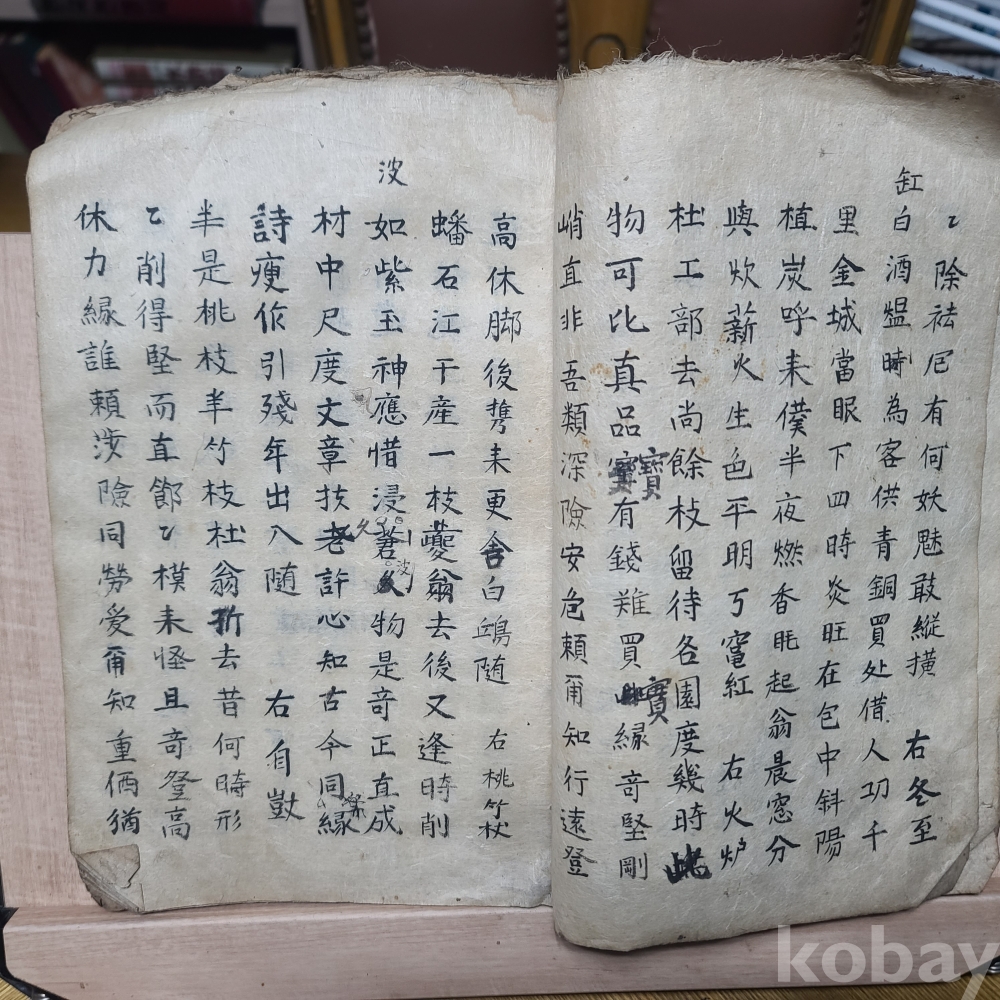 缸
〻除祛厄有何妖魅敢縱橫 右冬至
白酒盟時為客供青銅買处借人功千
里金城當眼下四時炎旺在包中斜陽
植炭呼来僕半夜燃香眊起翁晨窓分
與炊薪火生色平明丂窀紅 右火炉
杜工部去尚餘枝留待各園度幾時此
物可比真品寶有錢難買寶緣竒堅剛
峭直非吾類深險安危頼甭知行遠登
高休脚後携来更舍白鷗随 右桃竹杖
波
蟠石江干產一枝夔翁去後又逢時削
如紫玉神應惜浸蒼久波物是竒正直成
材中尺度文章扶老許心知古今同緣
詩瘦作引殘年出入随 右自歎
半是桃枝半竹枝杜翁折去昔何時形
〻削得堅而直節〻模来怪且竒登高
休力緣誰頼涉險同勞爱甭知重価猶
kobay